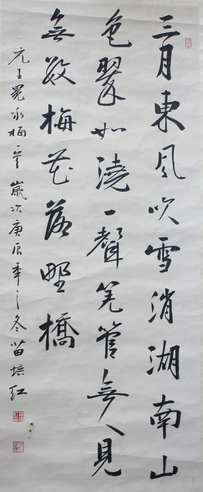 三月東風吹雪消湖南山
色翠如澆一聲羌管無人見
無數梅花落野橋
元王冕咏梅一章 歲次庚辰年之冬 苗培红